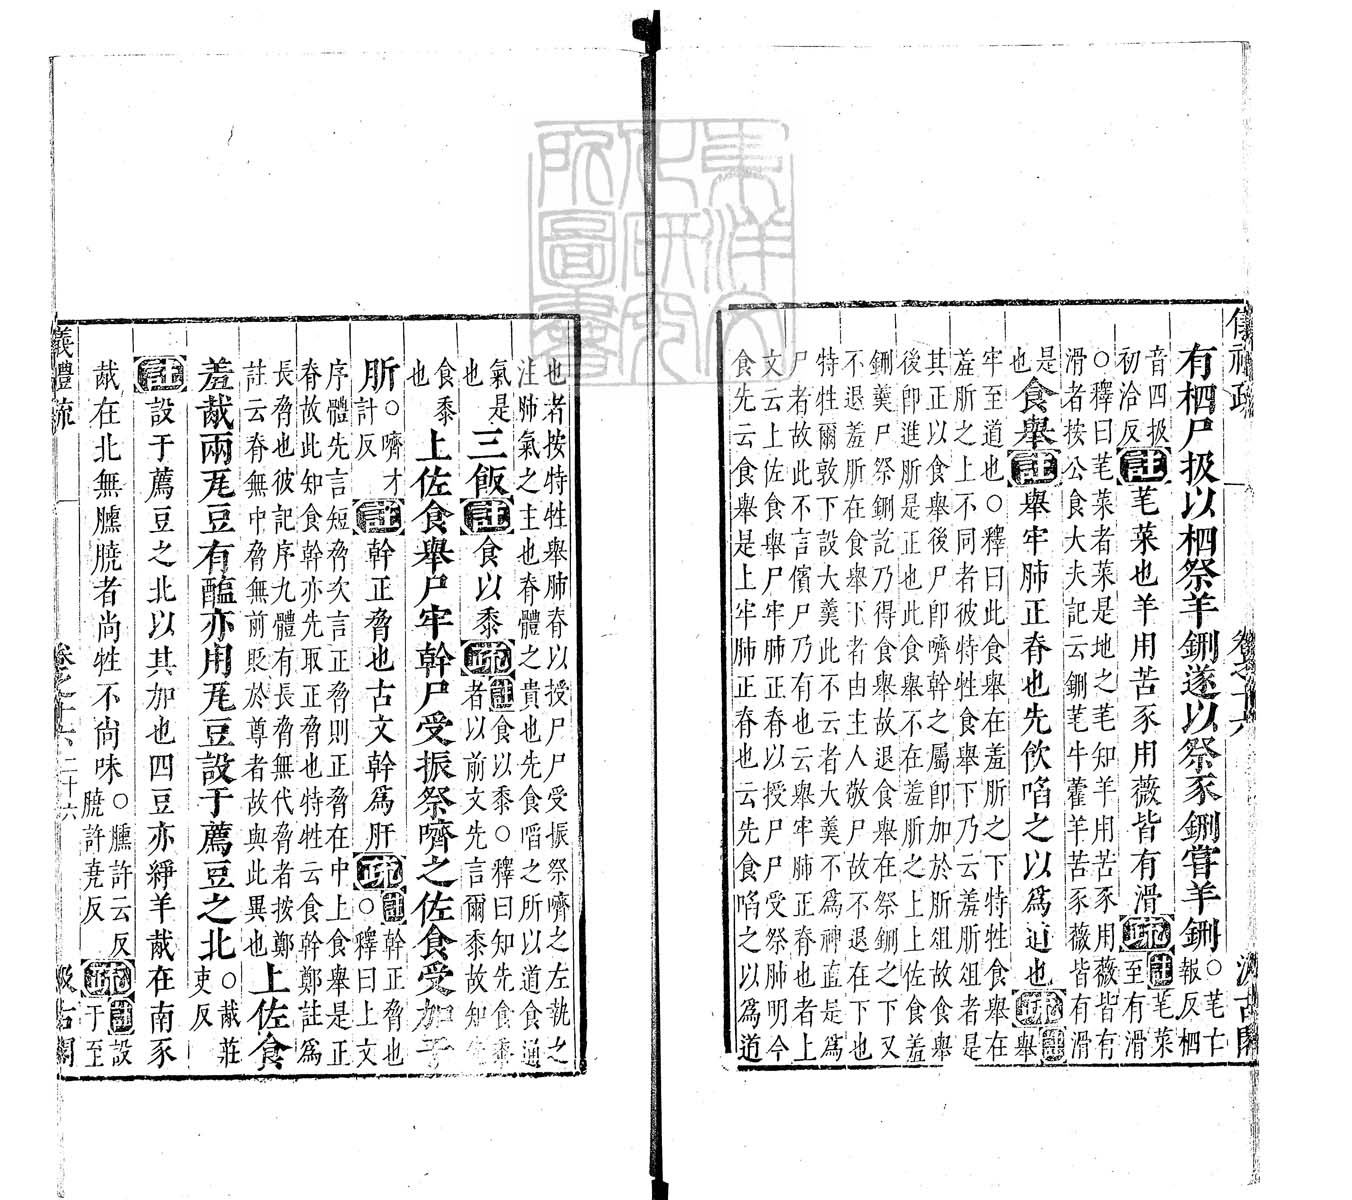 有柶尸扱以柶祭羊鉶遂以祭豕鉶嘗羊鉶○芼亡報反柶
音四扱初洽反註芼菜也羊用苦豕用薇皆有滑疏註芼菜至有滑
○釋曰芼菜者菜是地之芼知羊用苦豕用薇皆有
滑者按公食大夫記云鉶芼牛藿羊苦豕薇皆有滑
是也食舉註舉牢肺正脊也先飲啗之以爲道也疏註舉
牢至道也○釋曰此食舉在羞肵之下特牲食舉在
羞肵之上不同者彼特牲食舉下乃云羞肵俎者是
其正以食舉後尸卽嚌幹之屬卽加於肵俎故食舉
後卽進肵是正也此食舉不在羞肵之上上佐食羞
鉶羹尸祭鉶訖乃得食舉故退食舉在祭鉶之下又
不退羞肵在食舉下者由主人敬尸故不退在下也
特牲爾敦下設大羹此不云者大羹不爲神直是爲
尸者故此不言儐尸乃有也云舉牢肺正脊也者上
文云上佐食舉尸牢肺正脊以授尸尸受祭肺明今
食先云食舉是上牢肺正脊也云先食啗之以爲道
也者按特牲舉肺脊以授尸尸受振祭嚌之左執之
注肺氣之主也脊體之貴也先食啗之所以道食通
氣是也三飯註食以黍疏註食以黍○釋曰知先食黍者以前文先言爾黍故知先
食黍也上佐食舉尸牢幹尸受振祭嚌之佐食受加于
肵○嚌才計反註幹正脅也古文幹爲肝疏註幹正脅也○釋曰上文
序體先言短脅次言正脅則正脅在中上食舉是正
脊故此知食幹亦先取正脅也特牲云食幹鄭註爲
長脅也彼記序九體有長脅無代脅者按鄭
註云脊無中脅無前貶於尊者故與此異也上佐食
羞胾兩瓦豆有醢亦用瓦豆設于薦豆之北○胾莊吏反
註設于薦豆之北以其加也四豆亦綪羊胾在南豕
胾在北無臐膮者尚牲不尚味○臐許云反膮許堯反疏註設于至
儀禮疏 卷之十六 二十六 汲古閣